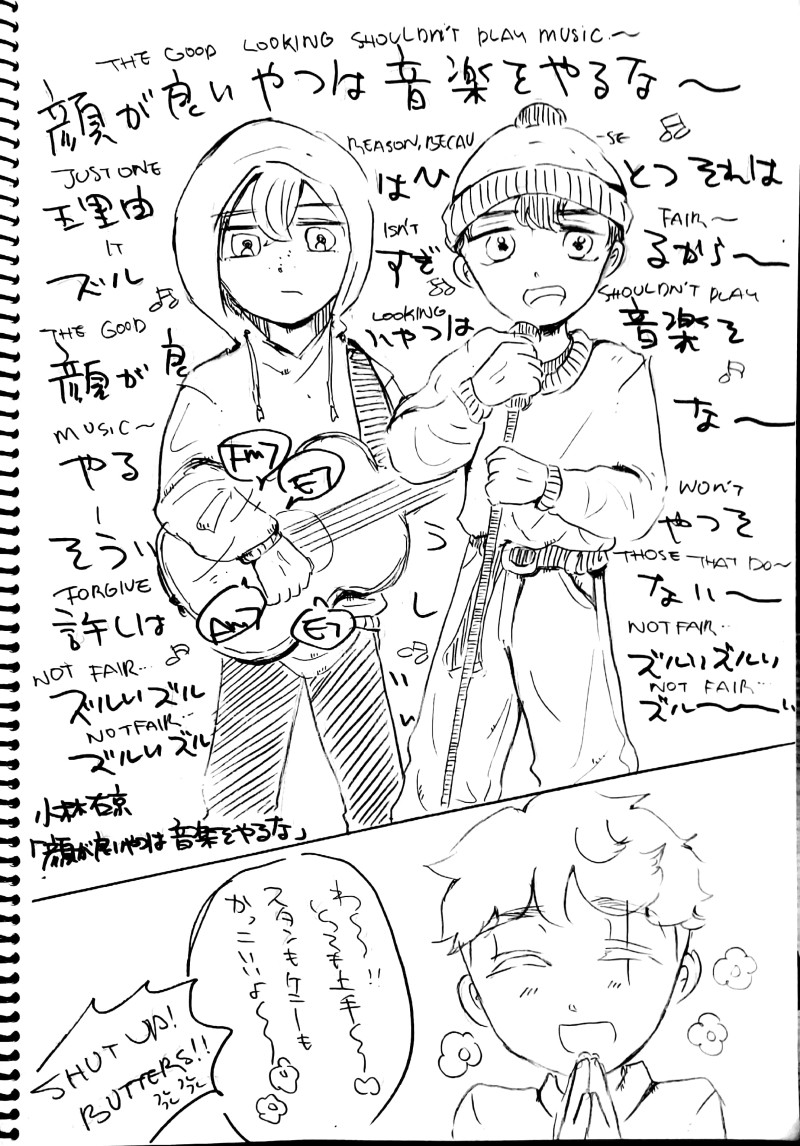 THE GOOD LOOKING SHOULDN'T PLAY MUSIC.~
顔が良いやつは音楽をやるな〜
JUST ONE REASON, BECAU -SE
理由はひとつそれは
IT ISN'T FAIR~
ズルすぎるから〜
THE GOOD LOOKING SHOULDN'T PLAY
顔が良いやつは音楽を
MUSIC~
やるな〜
WON'T
そういうやつを
FORGIVE THOSE THAT DO~
許しはしない〜
NOT FAIR... NOT FAIR...
ズルいズル いズルいズルい
NOT FAIR... NOT FAIR...
ズルいズル いズル〜い
Fm7
E7
Am7
E7
小林右京
「顔が良いやつは音楽をやるな」
わ〜〜!!
とっても上手〜〜
スタンもケニーも
かっこいいよ〜〜
SHUT UP!
BUTTERS!!